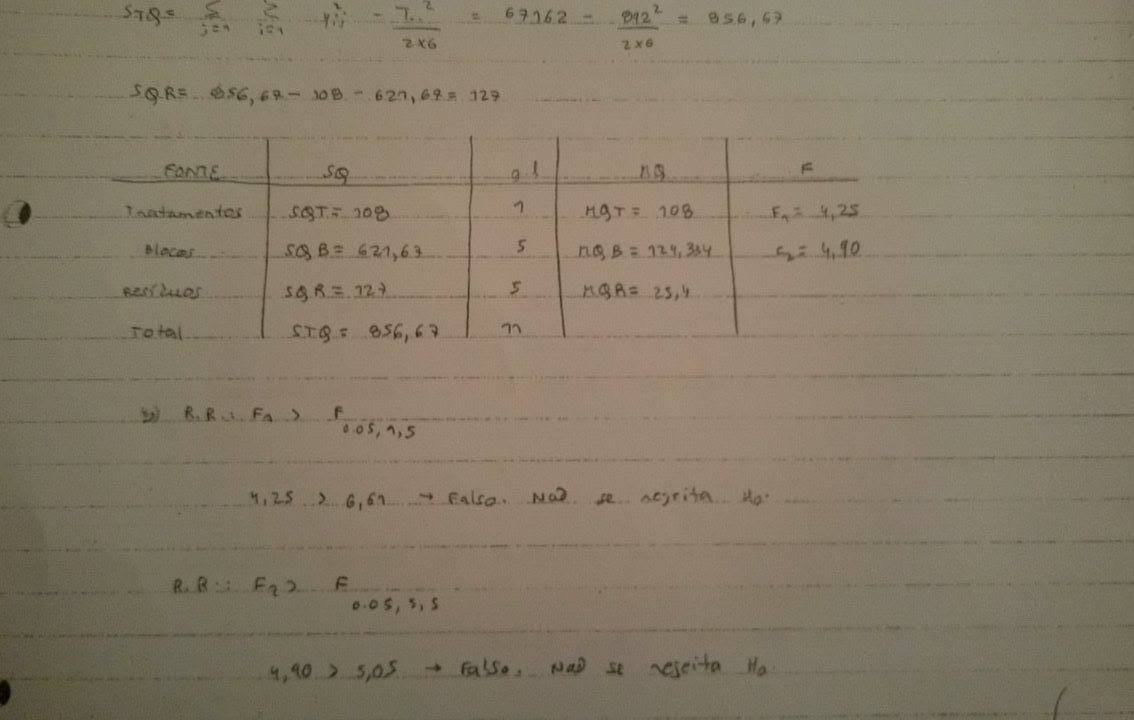 STQ = Σ j=1 Σ i=1 y²ij - T..² / 2x6 = 67162 - 892² / 2x6 = 856,67
SQR = 856,67 - 108 - 621,67 = 127
FONTE SQ g.l MQ F
Tratamentos SQT = 108 1 MQT = 108 F1 = 4,25
Blocos SQB = 621,67 5 MQB = 124,334 F2 = 4,90
Resíduos SQR = 127 5 MQR = 25,4
Total STQ = 856,67 11
R.R.: F1 > F 0.05,1,5
4,25 > 6,61 → Falso. Não se rejeita H0.
R.R.: F2 > F 0.05,5,5
4,90 > 5,05 → Falso. Não se rejeita H0